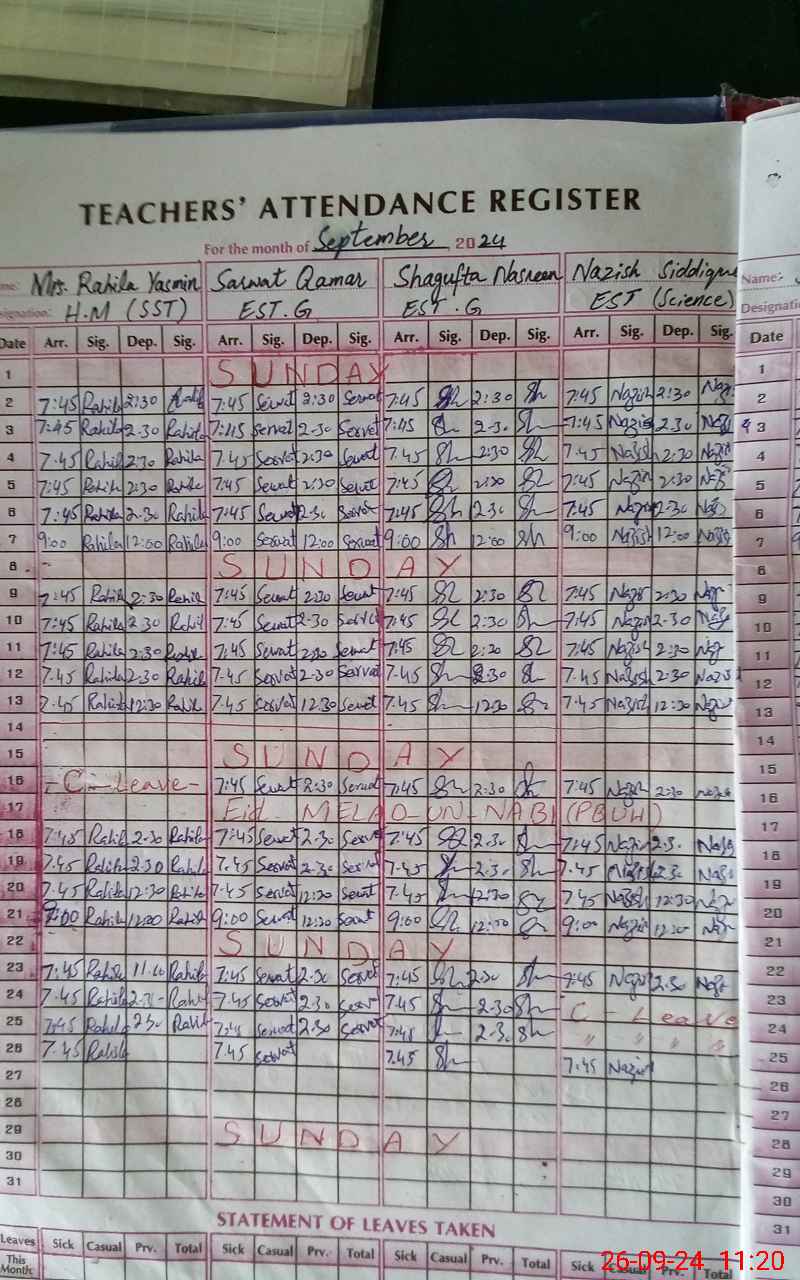 TEACHERS' ATTENDANCE REGISTER
For the month of September 2024
me: Mrs. Rahila Yasmin Sarwat Qamar Shagufta Nasreen Nazish Siddiqu Name:
signation: H.M (SST) EST.G EST.G EST (Science) Designati
Date Arr. Sig. Dep. Sig. Arr. Sig. Dep. Sig. Arr. Sig. Dep. Sig. Arr. Sig. Dep. Sig. Date
1 SUNDAY 1
2 7:45 Rahila 2:30 7:45 Serwat 2:30 Serwat 7:45 Sh 2:30 Sh 7:45 Nazish 2:30 Naz 2
3 7:45 Rahila 2-30 Rahila 7:45 Servat 2-30 Servat 7:45 Sh 2-3. Sh 7:45 Nazish 2.30 Naz 3
4 7.45 Rahila 2:30 Rahila 7.45 Servat 2:30 Serwat 7.45 Sh 2:30 Sh 7.45 Nazish 2:30 Nazish 4
5 7:45 Rahila 2:30 Rahila 7:45 Serwat 2:30 Serwat 7:45 Sh 2:30 Sh 7:45 Nazish 2:30 Naz 5
6 7:45 Rahila 2-30 Rahila 7:45 Serwat 2-30 Servat 7:45 Sh 2-30 Sh 7:45 Nazish 2-30 Naz 6
7 9:00 Rahila 12:00 Rahila 9:00 Servat 12:00 Servat 9:00 Sh 12:00 Sh 9:00 Nazish 12:00 Nazish 7
8 SUNDAY 8
9 7:45 Rahila 2-30 Rahila 7:45 Serwat 2:30 Serwat 7:45 Sh 2:30 Sh 7:45 Nazish 2:30 Naz 9
10 7:45 Rahila 2.30 Rahila 7:45 Serwat 2-30 Servat 7:45 Sh 2:30 Sh 7:45 Nazish 2-30 Naz 10
11 7:45 Rahila 2:30 Rahila 7:45 Serwat 2:30 Serwat 7:45 Sh 2:30 Sh 7:45 Nazish 2:30 Naz 11
12 7.45 Rahila 2-30 Rahila 7.45 Servat 2-30 Servat 7.45 Sh 2.30 Sh 7.45 Nazish 2-30 Nazish 12
13 7.45 Rahila 12:30 Rahila 7.45 Servat 12.30 Serwat 7.45 Sh 12:30 Sh 7.45 Nazish 12:30 Nazish 13
14 14
15 SUNDAY 15
16 - C - Leave - 7:45 Serwat 2:30 Servat 7:45 Sh 2:30 Sh 7:45 Nazish 2:30 Nazish 16
17 Eid MELAD-UN-NABI (PBUH) 17
18 7:45 Rahila 2-30 Rahila 7:45 Serwat 2.30 Serv 7:45 Sh 2.30 Sh 7:45 Nazish 2.3. Naz 18
19 7.45 Rahila 2.30 Rahila 7.45 Servat 2-30 Servat 7.45 Sh 2.30 Sh 7.45 Nazish 2.30 Naz 19
20 7.45 Rahila 12:30 Rahila 7.45 Servat 12:30 Serwat 7.45 Sh 12:30 Sh 7.45 Nazish 12:30 Naz 20
21 9:00 Rahila 12:00 Rahila 9:00 Serwat 12:30 Serwat 9:00 Sh 12:00 Sh 9:00 Nazish 12:00 Naz 21
22 SUNDAY 22
23 7:45 Rahila Rahila 7:45 Serwat 2:30 Servat 7:45 Sh 2:30 Sh 7:45 Nazish 2.30 Naz 23
24 7.45 Rahila Rahila 7.45 Servat 2.30 Servat 7.45 Sh 2.30 Sh C - Leave 24
25 7:45 Rahila 2:30 Rahila 7:45 Serwat 2:30 Servat 7:45 Sh 2.30 Sh " " " " 25
26 7.45 Rahila 7.45 Servat 7.45 Sh 7.45 Nazish 26
27 27
28 28
29 SUNDAY 29
30 30
31 31
STATEMENT OF LEAVES TAKEN
Leaves Sick Casual Prv. Total Sick Casual Prv. Total Sick Casual Prv. Total Sick Casual Prv. Total
This Month
26-09-24 11:20